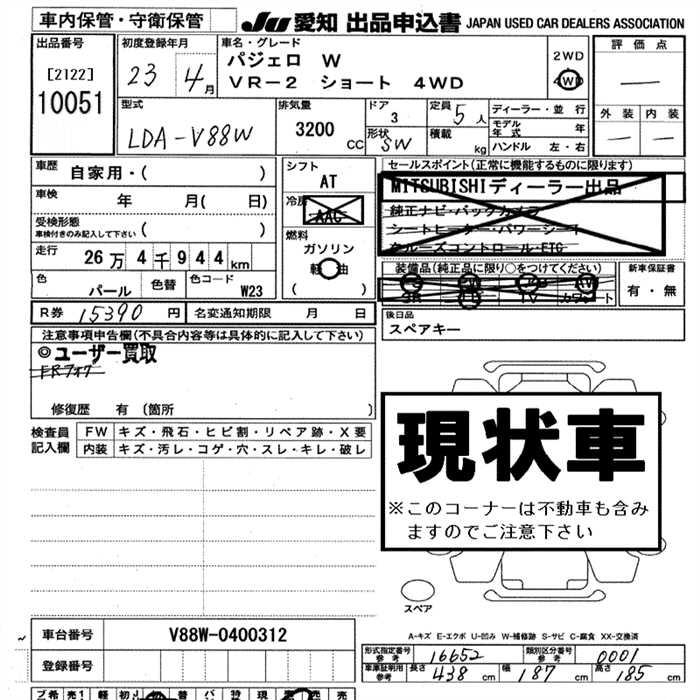 車内保管・守衛保管 JU 愛知 出品申込書 JAPAN USED CAR DEALERS ASSOCIATION
出品番号 初度登録年月 車名・グレード 評価点
[2122] 23年 4月 パジェロ W 2WD
10051 VR-2 ショート 4WD 4WD —
型式 排気量 ドア 定員 ディーラー・並行 外装 内装
LDA-V88W 3200 CC 3 5人 モデル年式 年 — —
形状 SW 積載 kg ハンドル 左・右
車歴 自家用・( ) シフト セールスポイント(正常に機能するものに限ります)
車検 年 月( 日) AT MITSUBISHIディーラー出品
冷房 AAC 純正ナビ・バックカメラ
受検形態 シートヒーター・パワーシート
車検付きのみ記入して下さい ( ) 燃料 クルーズコントロール・ETC
走行 26万4千944km ガソリン
軽油 装備品(純正品に限り○をつけてください) 新車保証書
色 パール 色替 色コード W23 有・無
R券 15390円 名変通知期限 月 日 後日品
スペアキー
注意事項申告欄(不具合内容等は具体的に記入して下さい)
◎ユーザー買取
FRフォグ
修復歴 有 (箇所 )
検査員記入欄 FW キズ・飛石・ヒビ割・リペア跡・X要
内装 キズ・汚レ・コゲ・穴・スレ・キレ・破レ
現状車
※このコーナーは不動車も含み
ますのでご注意下さい
スペア
A-キズ E-エクボ U-凹み W-補修跡 S-サビ C-腐食 XX-交換済
車台番号 V88W-0400312
形式指定番号 参考 16652 類別区分番号 参考 0001
登録番号 車庫証明用 参考 長さ 438cm 幅 187cm 高さ 185cm